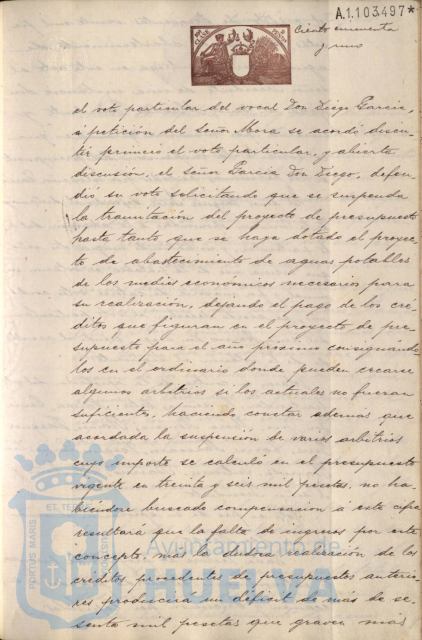 Ciento cincuenta
y uno
A.1.103.497*
el voto particular del vocal Don Diego Garcia,
a petición del Señor Mora se acordó discu-
tir primero el voto particular, y abierta
discusión, el Señor Garcia Don Diego, defen-
dió su voto solicitando que se suspenda
la tramitación del proyecto de presupuesto
hasta tanto que se haga dotado el proyec-
to de abastecimiento de aguas potables
de los medios económicos necesarios para
su realización, dejando el pago de los cré-
ditos que figuran en el proyecto de pre-
supuesto para el año proximo consignándo
los en el ordinario donde pueden crearse
algunos arbitrios si los actuales no fueran
suficientes, haciendo constar además que
acordada la suspensión de varios arbitrios
cuyo importe se calculó en el presupuesto
vigente en treinta y seis mil pesetas, no ha-
biéndose buscado compensacion a esta cifra
resultará que la falta de ingresos por este
concepto, mas la dudosa realización de los
créditos procedentes de presupuestos anterio-
res producirá un déficit de más de se-
senta mil pesetas que graven mas
PORTUS MARIS
ET TERRAE
Ayuntamiento de
HUELVA